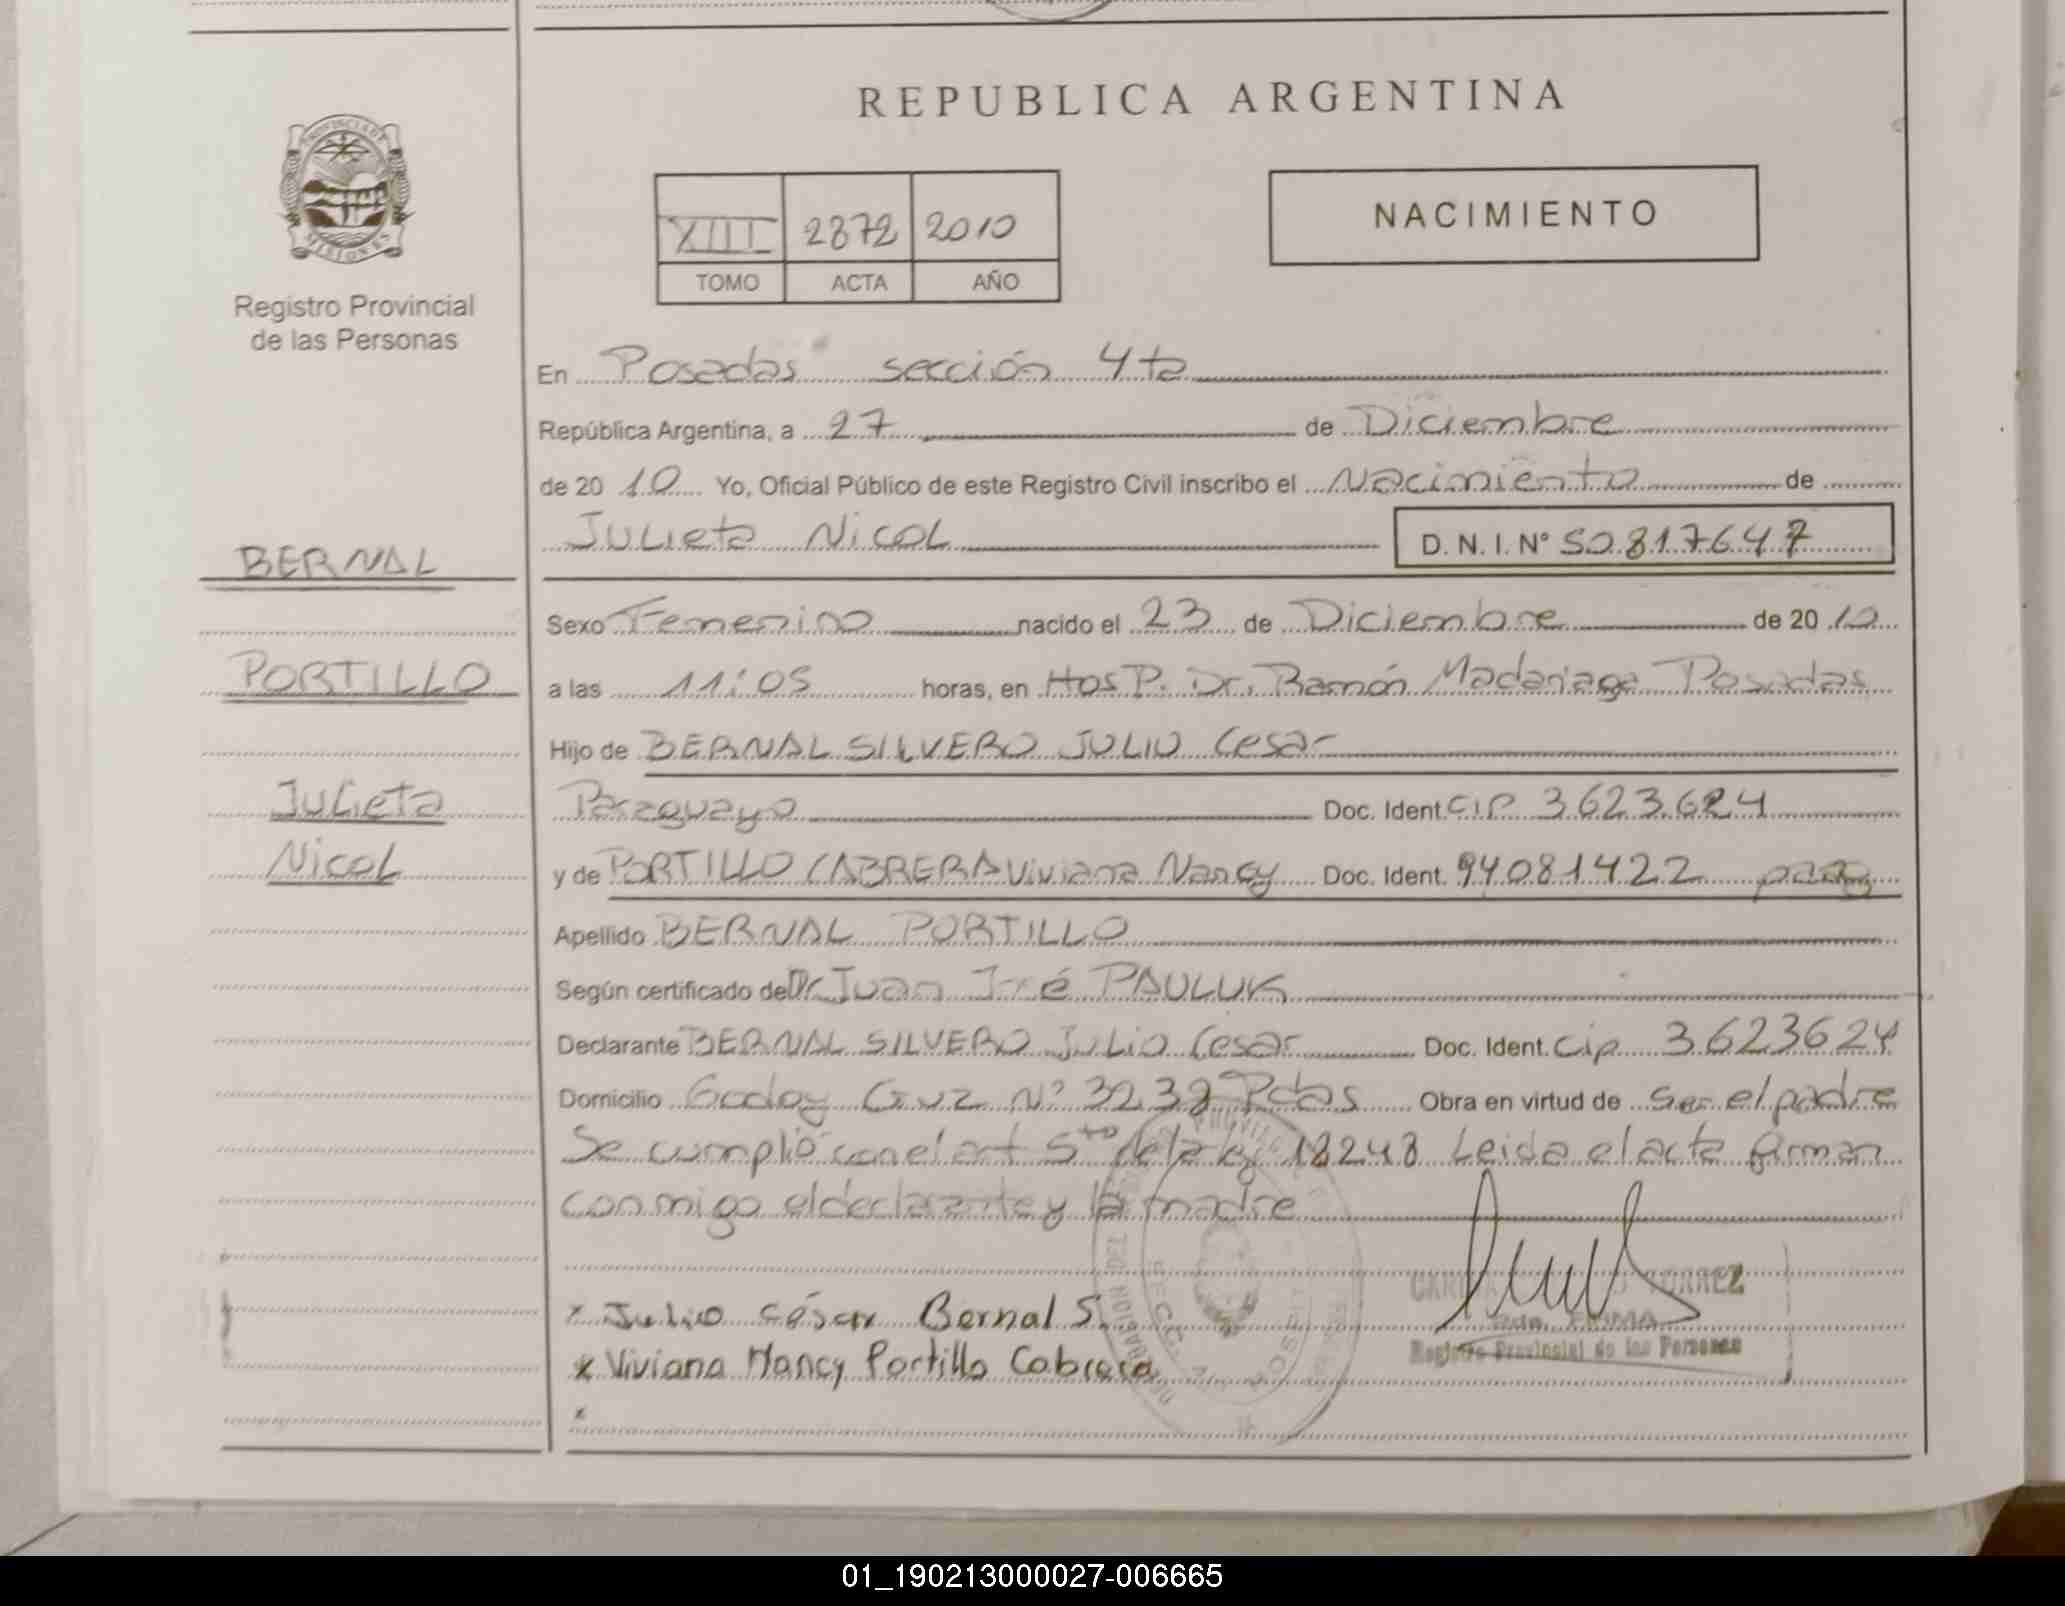 REPUBLICA ARGENTINA
PROVINCIA DE MISIONES
Registro Provincial
de las Personas
XIII 2872 2010
TOMO ACTA AÑO
NACIMIENTO
BERNAL
PORTILLO
Julieta
Nicol
En Posadas sección 4ta
República Argentina, a 27 de Diciembre
de 2010 Yo, Oficial Público de este Registro Civil inscribo el Nacimiento de
Julieta Nicol D.N.I. Nº 50.817647
Sexo Femenino nacido el 23 de Diciembre de 2010
a las 11:05 horas, en Hosp. Dr. Ramón Madariaga Posadas
Hijo de BERNAL SILVERO JULIO Cesar
Paraguayo Doc. Ident. CIP 3623624
y de PORTILLO CABRERA Viviana Nancy Doc. Ident. 94081422
Apellido BERNAL PORTILLO
Según certificado de Dr Juan José PAULUK
Declarante BERNAL SILVERO Julio Cesar Doc. Ident. Cip 3623624
Domicilio Godoy Cruz Nº 3238 Pdas Obra en virtud de Ser el padre
Se cumplió con el art 5to de la ley 18248 Leida el acta firman
conmigo el declarante y la madre
x Julio César Bernal S.
x Viviana Nancy Portillo Cabrera
x
Registro Provincial de las Personas
01_190213000027-006665